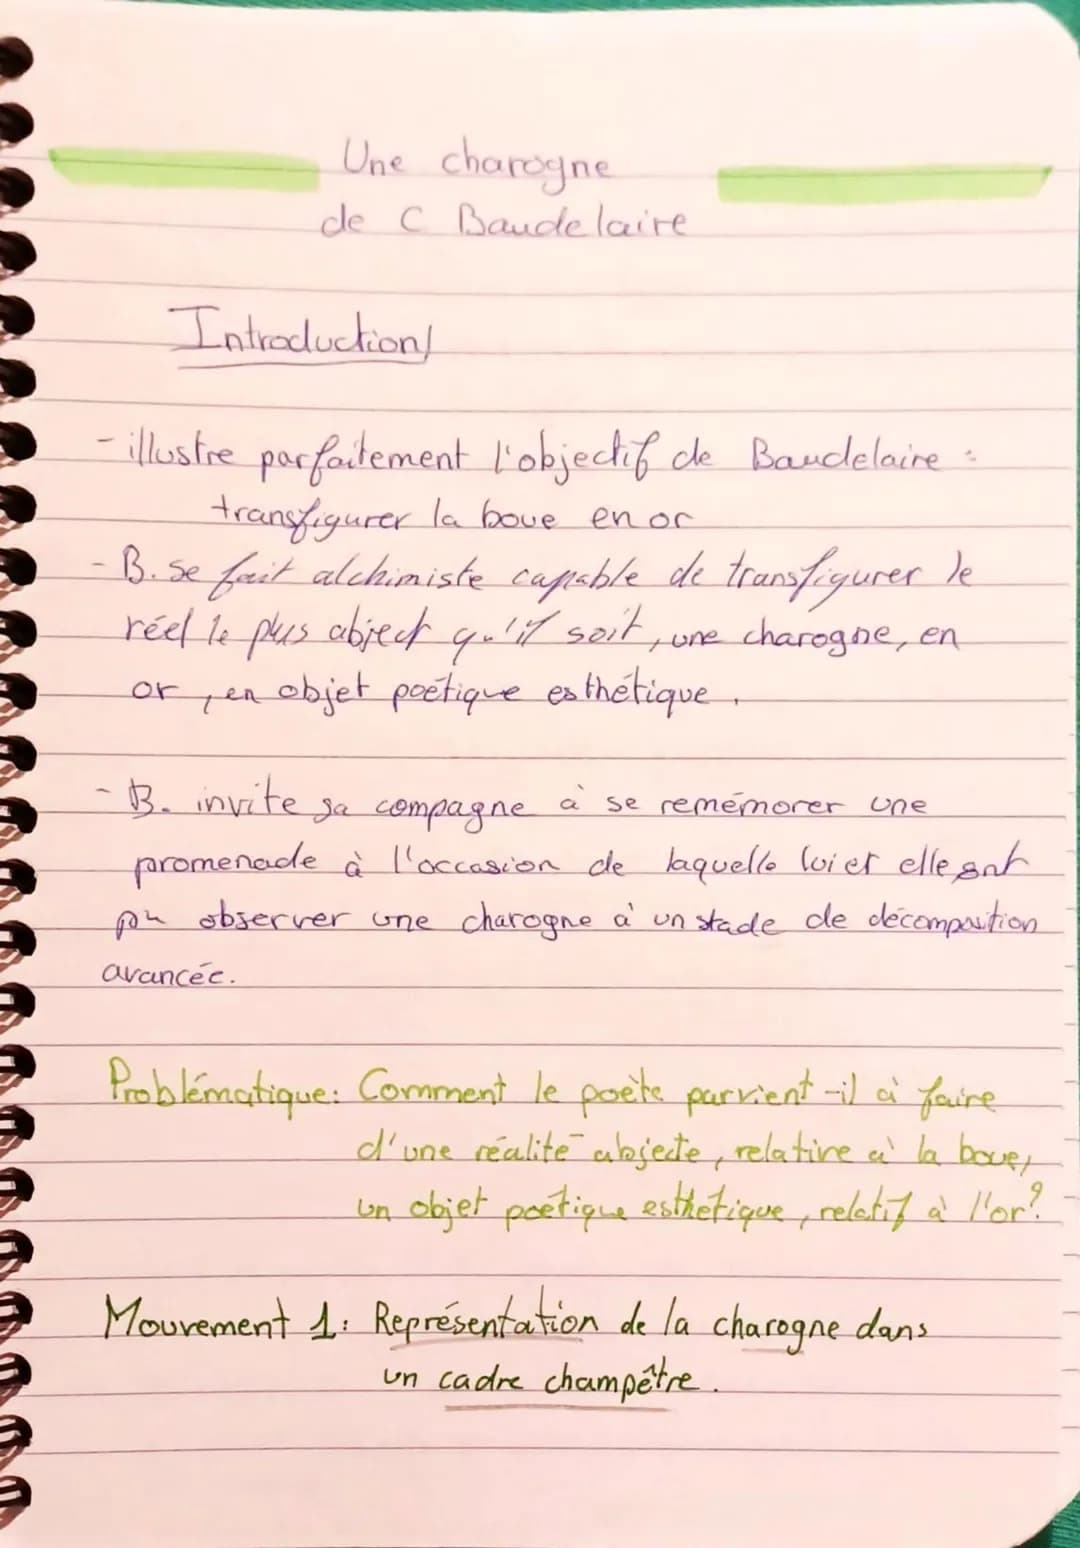 Une charogne
de C Baudelaire
Introduction/
- illustre parfaitement l'objectif de Baudelaire :
transfigurer la boue en or
- B. se fait alchimiste capable de transfigurer le
réel le plus abject qu'il soit, une charogne, en
or, en objet poétique esthétique.
- B. invite sa compagne à se remémorer une
promenade à l'occasion de laquelle lui et elle ont
pu observer une charogne à un stade de décomposition
avancée.
Problématique: Comment le poète parvient-il à faire
d'une réalité abjecte, relative à la boue,
un objet poétique esthétique, relatif à l'or?
Mouvement 1: Représentation de la charogne dans
un cadre champêtre.